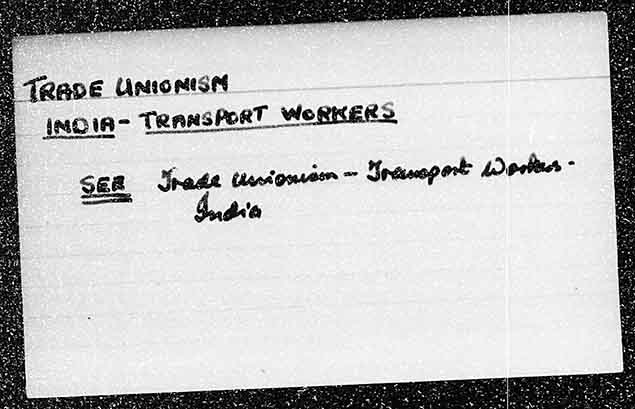 TRADE UNIONISM
INDIA - TRANSPORT WORKERS
SEE Trade unionism - Transport Workers -
India